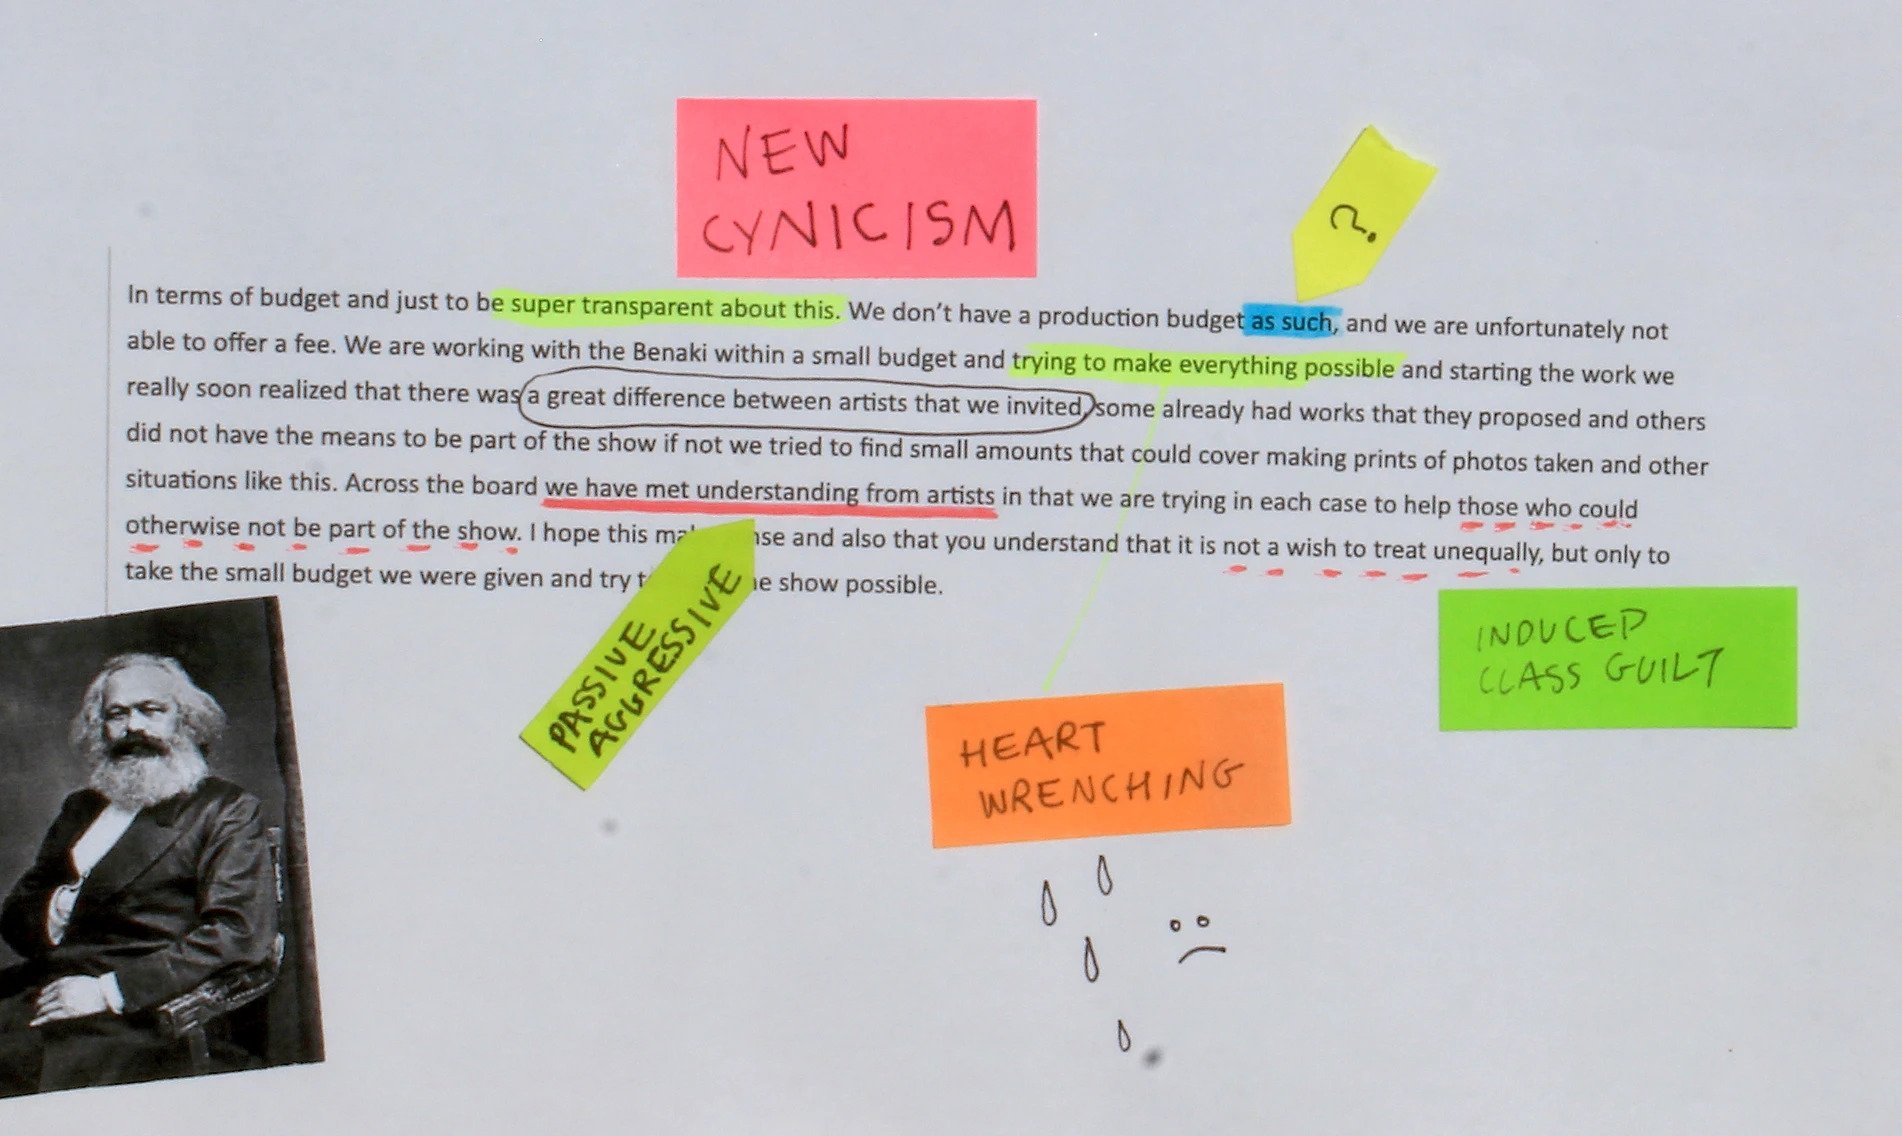 NEW
CYNICISM
?
In terms of budget and just to be super transparent about this. We don't have a production budget as such, and we are unfortunately not
able to offer a fee. We are working with the Benaki within a small budget and trying to make everything possible and starting the work we
really soon realized that there was a great difference between artists that we invited, some already had works that they proposed and others
did not have the means to be part of the show if not we tried to find small amounts that could cover making prints of photos taken and other
situations like this. Across the board we have met understanding from artists in that we are trying in each case to help those who could
otherwise not be part of the show. I hope this and also that you understand that it is not a wish to treat unequally, but only to
take the small budget we were given and try show possible.
PASSIVE
AGGRESSIVE
INDUCED
CLASS GUILT
HEART
WRENCHING